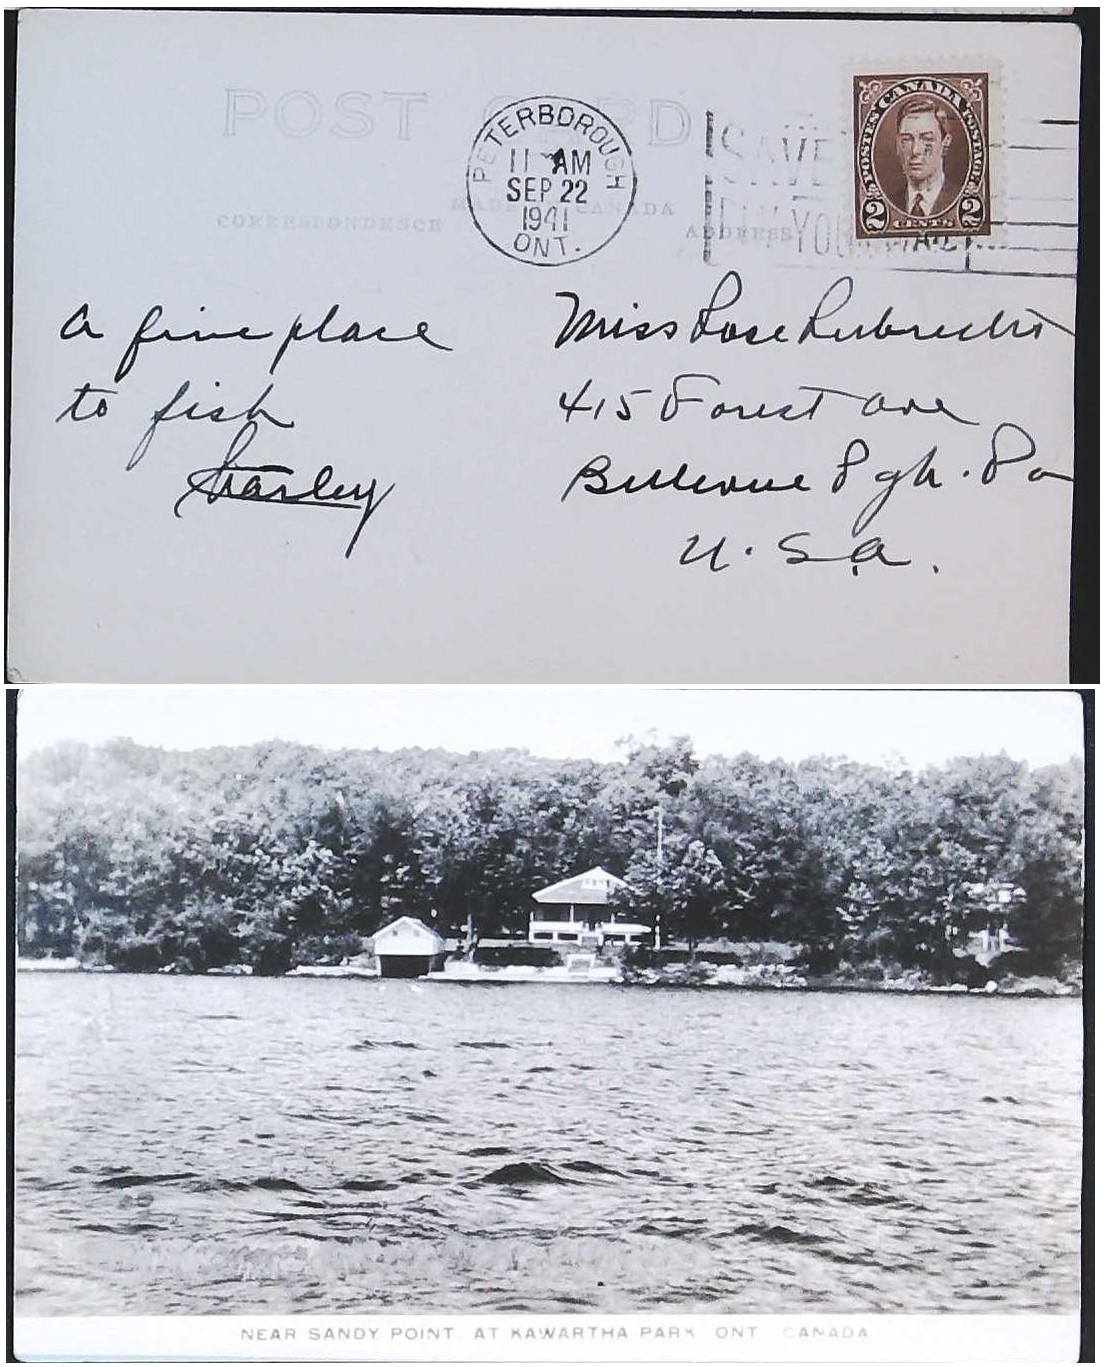 POST CARD
PETERBOROUGH
11 AM
SEP 22
1941
ONT.
SAVE
POSTES CANADA POSTAGE
2 CENTS 2
MADE IN CANADA
CORRESPONDENCE
ADDRESS
a fine place
to fish
Stanley
Miss Rose
415 Forest ave
Bellevue Pgh. Pa
U.S.a.
NEAR SANDY POINT AT KAWARTHA PARK ONT CANADA